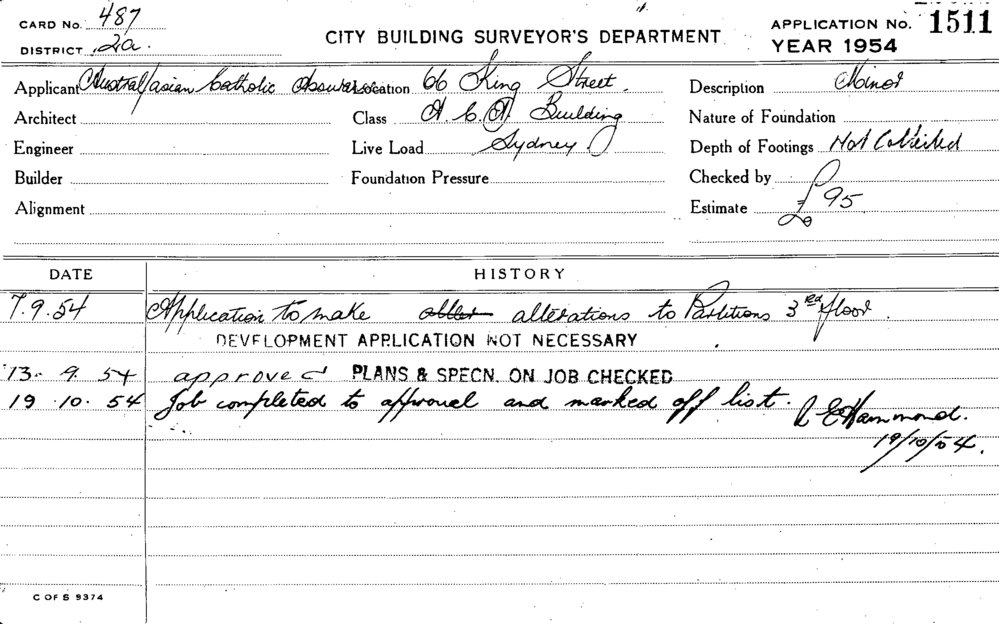 CARD No. 487
DISTRICT 2a.
CITY BUILDING SURVEYOR'S DEPARTMENT
APPLICATION No. 1511
YEAR 1954
Applicant Australasian Catholic Assurance Location 66 King Street. Description Minor
Architect Class A.C.A. Building Nature of Foundation
Engineer Live Load Sydney Depth of Footings Not Collected
Builder Foundation Pressure Checked by
Alignment Estimate £95
DATE HISTORY
7.9.54 Application to make alterations to Partitions 3rd floor.
DEVELOPMENT APPLICATION NOT NECESSARY
13. 9. 54 approved PLANS & SPECN. ON JOB CHECKED
19.10.54 Job completed to approval and marked off list. R E Hammond.
19/10/54.
C OF S 9374